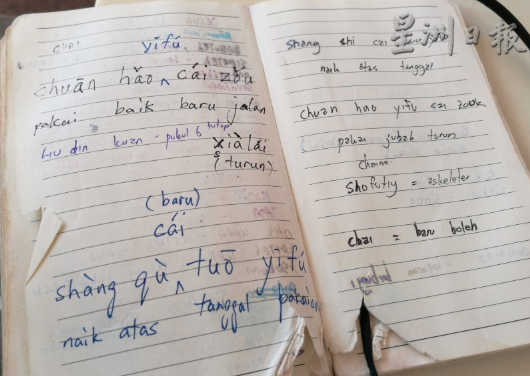 yīfú
chuān hǎo ^ cái zǒu
pakai baik baru jalan
Liu din kuan : pukul 6 tutup
xiàlái
(turun)
(baru)
cái
shàng qù ^ tuō yīfú
naik atas tanggal pakaian
星洲日报
shang chi cai
naik atas tanggal
chuan hao yifu cai
pakai jubah turun
Shofutiy =
chai = baru boleh